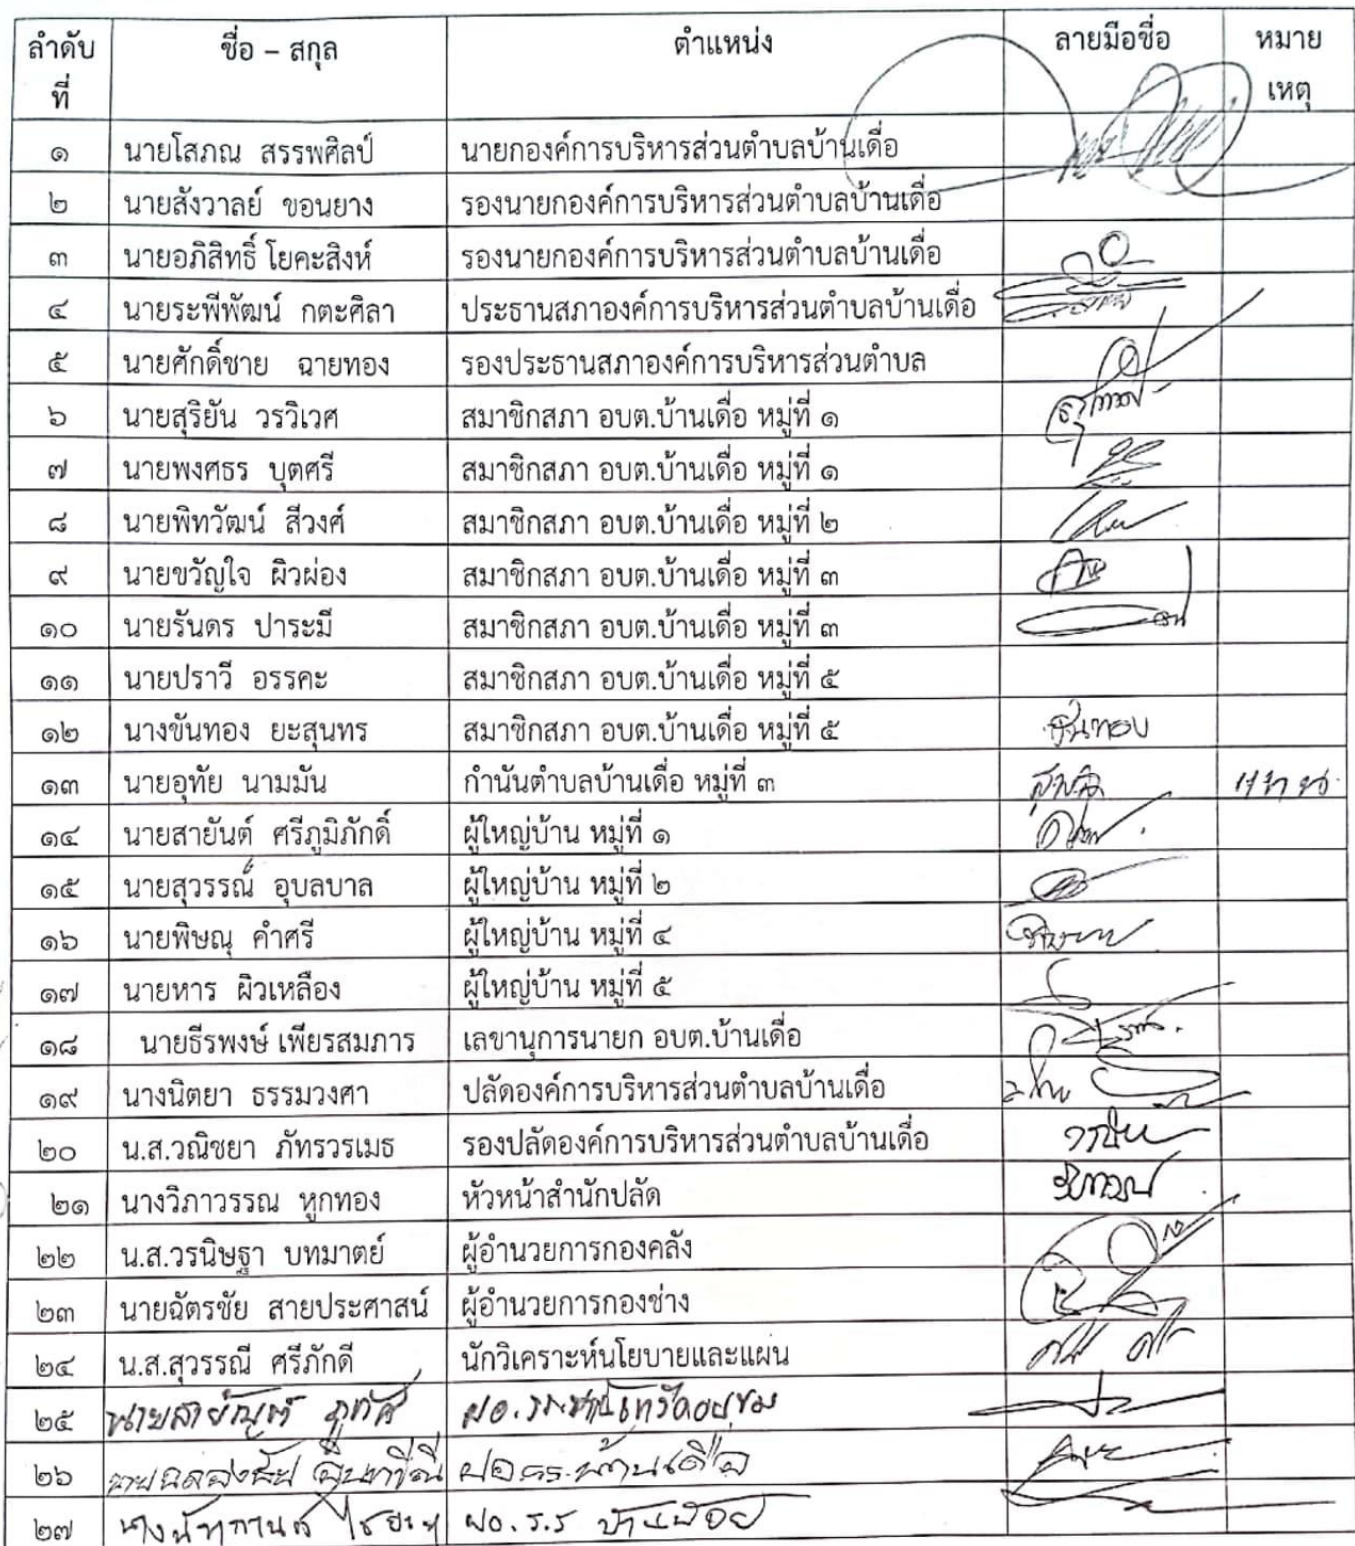 ลำดับที่ ชื่อ – สกุล ตำแหน่ง ลายมือชื่อ หมายเหตุ
๑ นายโสภณ สรรพศิลป์ นายกองค์การบริหารส่วนตำบลบ้านเดื่อ
๒ นายสังวาลย์ ขอนยาง รองนายกองค์การบริหารส่วนตำบลบ้านเดื่อ
๓ นายอภิสิทธิ์ โยคะสิงห์ รองนายกองค์การบริหารส่วนตำบลบ้านเดื่อ
๔ นายระพีพัฒน์ กตะศิลา ประธานสภาองค์การบริหารส่วนตำบลบ้านเดื่อ
๕ นายศักดิ์ชาย ฉายทอง รองประธานสภาอ์งค์การบริหารส่วนตำบล
๖ นายสุริยัน วรวิเวศ สมาชิกสภา อบต.บ้านเดื่อ หมู่ที่ ๑
๗ นายพงศธร บุตศรี สมาชิกสภา อบต.บ้านเดื่อ หมู่ที่ ๑
๘ นายพิทวัฒน์ สีวงศ์ สมาชิกสภา อบต.บ้านเดื่อ หมู่ที่ ๒
๙ นายขวัญใจ ผิวผ่อง สมาชิกสภา อบต.บ้านเดื่อ หมู่ที่ ๓
๑๐ นายรันดร ปาระมี สมาชิกสภา อบต.บ้านเดื่อ หมู่ที่ ๓
๑๑ นายปราวี อรรคะ สมาชิกสภา อบต.บ้านเดื่อ หมู่ที่ ๕
๑๒ นางขันทอง ยะสุนทร สมาชิกสภา อบต.บ้านเดื่อ หมู่ที่ ๕ ขันทอง
๑๓ นายอุทัย นามมัน กำนันตำบลบ้านเดื่อ หมู่ที่ ๓
๑๔ นายสายันต์ ศรีภูมิภักดิ์ ผู้ใหญ่บ้าน หมู่ที่ ๑
๑๕ นายสุวรรณ์ อุบลบาล ผู้ใหญ่บ้าน หมู่ที่ ๒
๑๖ นายพิษณุ คำศรี ผู้ใหญ่บ้าน หมู่ที่ ๔
๑๗ นายหาร ผิวเหลือง ผู้ใหญ่บ้าน หมู่ที่ ๕
๑๘ นายธีรพงษ์ เพียรสมภาร เลขานุการนายก อบต.บ้านเดื่อ
๑๙ นางนิตยา ธรรมวงศา ปลัดองค์การบริหารส่วนตำบลบ้านเดื่อ
๒๐ น.ส.วณิชยา ภัทรวรเมธ รองปลัดองค์การบริหารส่วนตำบลบ้านเดื่อ
๒๑ นางวิภาวรรณ หูกทอง หัวหน้าสำนักปลัด
๒๒ น.ส.วรนิษฐา บทมาตย์ ผู้อำนวยการกองคลัง
๒๓ นายฉัตรชัย สายประศาสน์ ผู้อำนวยการกองช่าง
๒๔ น.ส.สุวรรณี ศรีภักดี นักวิเคราะห์นโยบายและแผน
๒๕
๒๖ ผอ.รร.บ้านเดื่อ
๒๗ ผอ.ร.ร